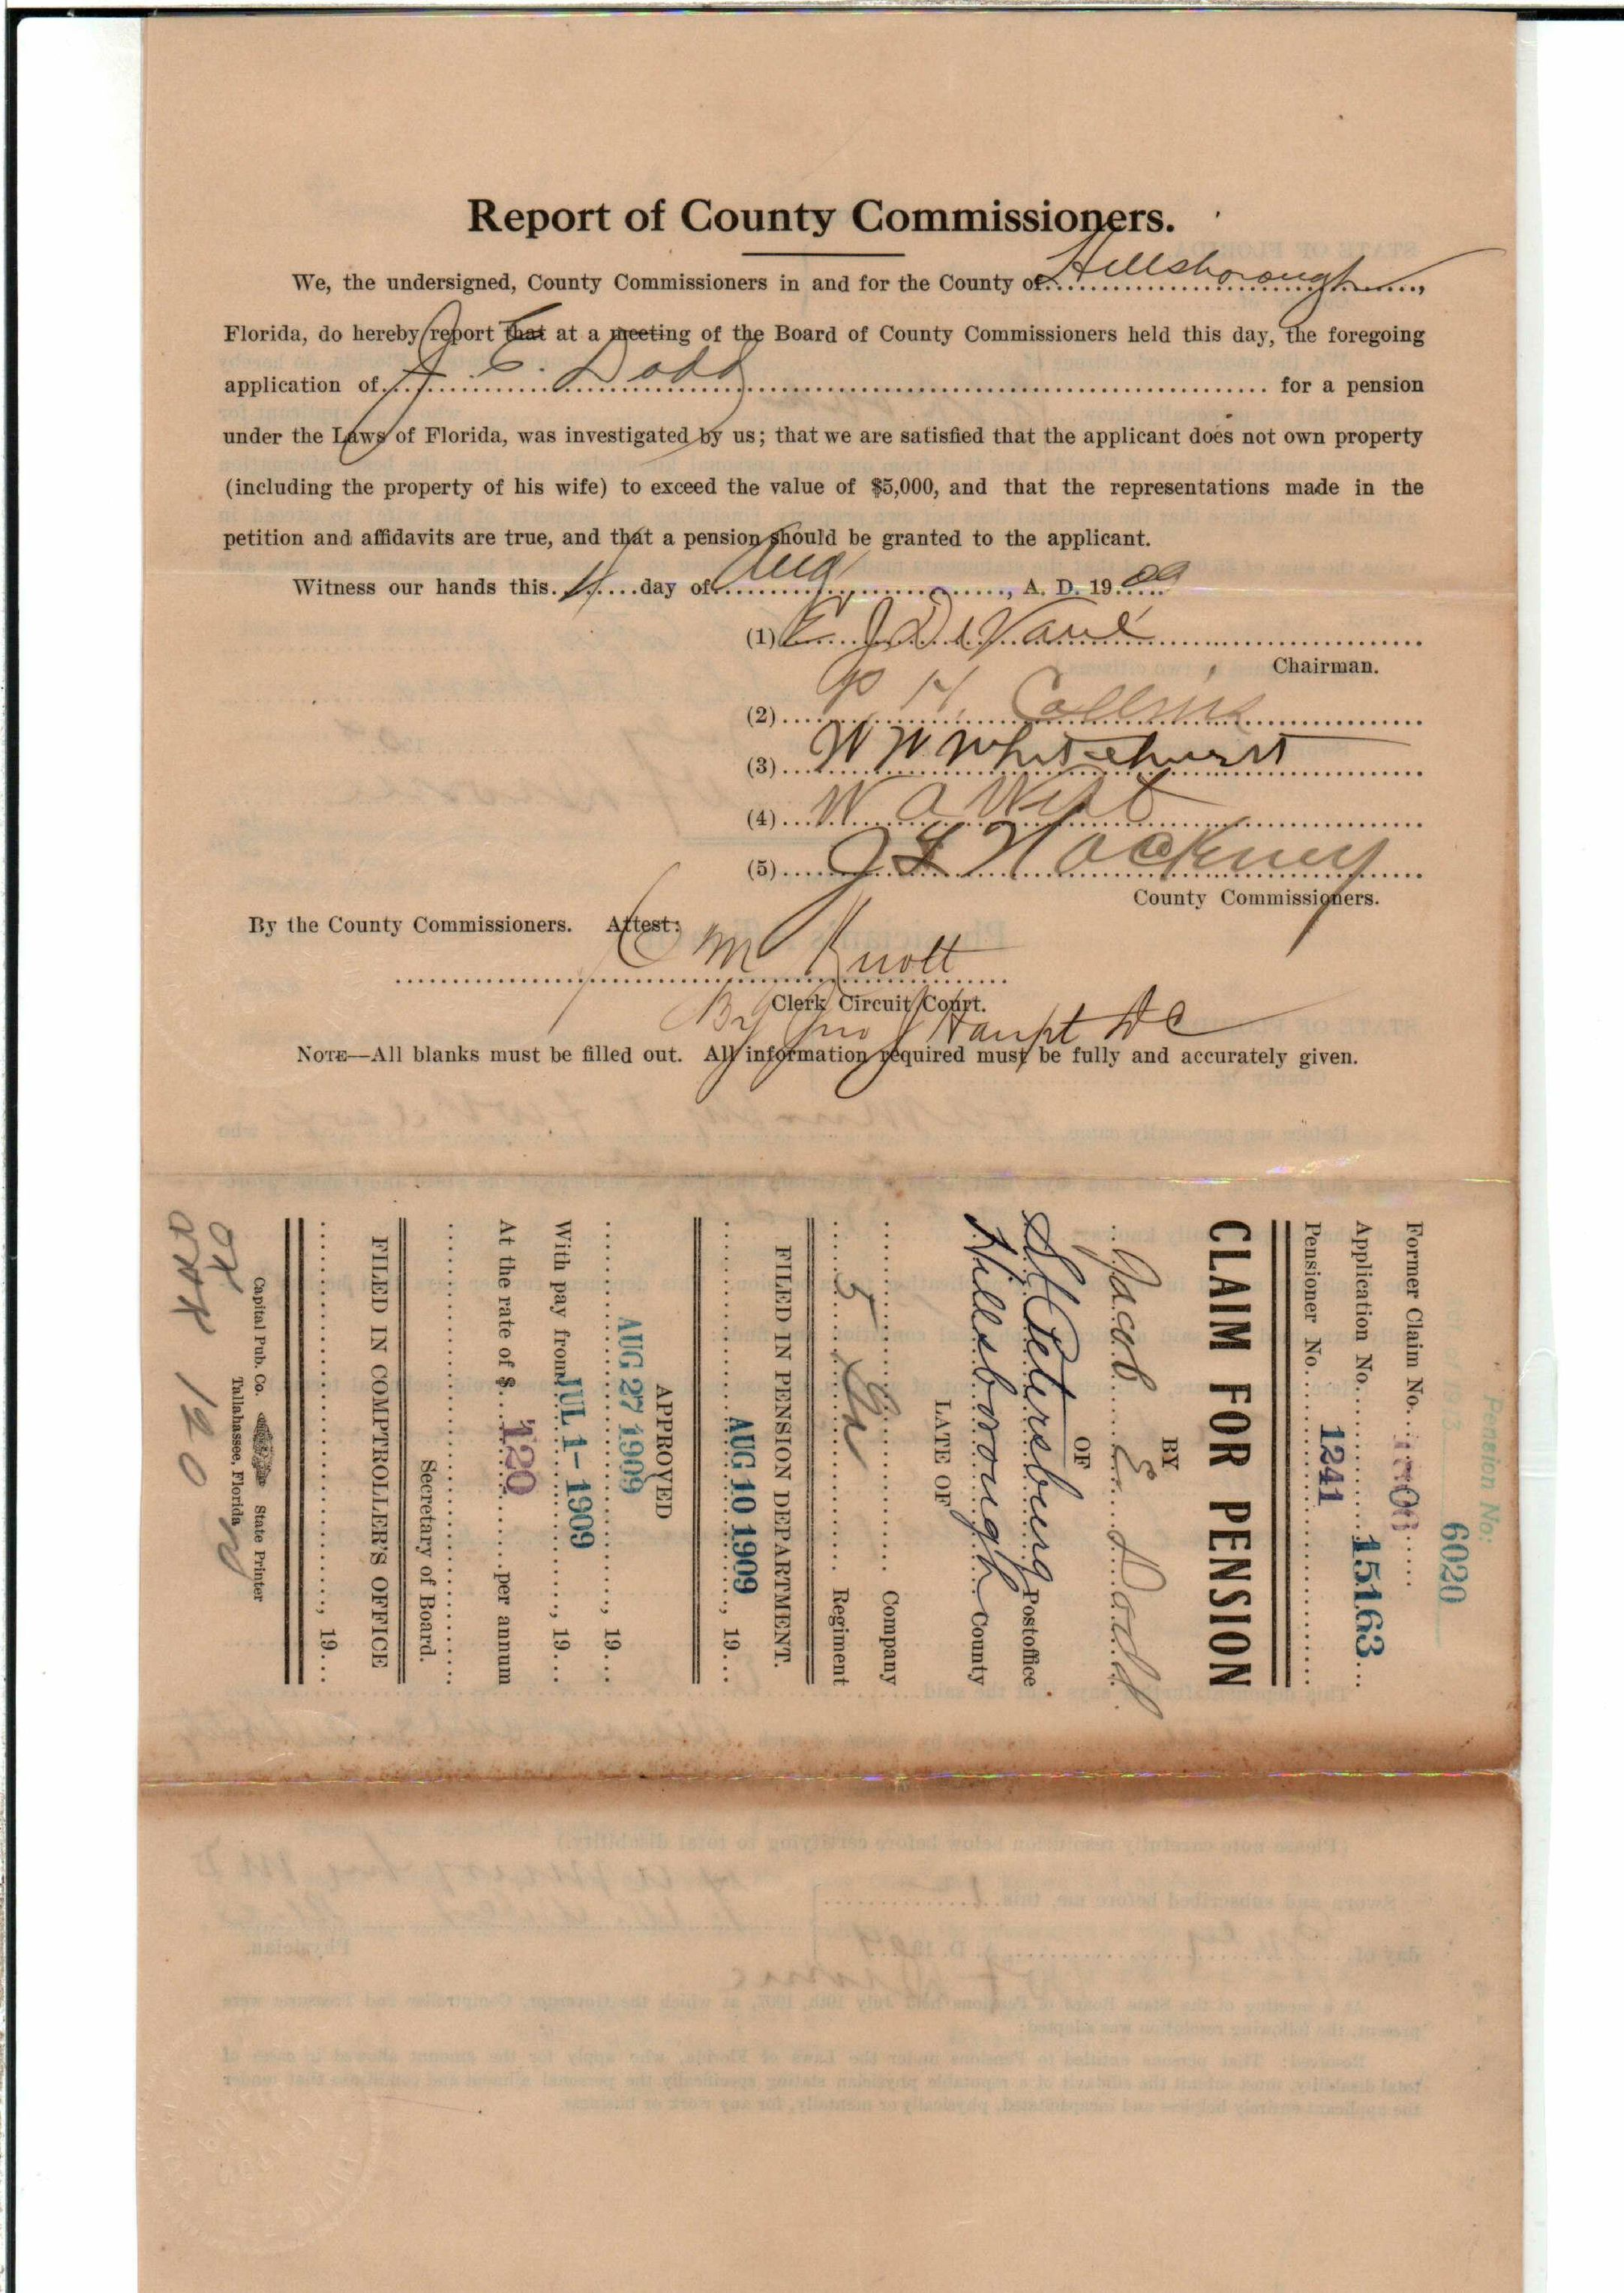 Report of County Commissioners.
We, the undersigned, County Commissioners in and for the County of Hillsborough,
Florida, do hereby report that at a meeting of the Board of County Commissioners held this day, the foregoing
application of J. E. Dodd for a pension
under the Laws of Florida, was investigated by us; that we are satisfied that the applicant does not own property
(including the property of his wife) to exceed the value of $5,000, and that the representations made in the
petition and affidavits are true, and that a pension should be granted to the applicant.
Witness our hands this day of Aug, A. D. 1909
(1) Chairman.
(2) Collins
(3) W W Whitehurst
(4) W A West
(5) Hackney
County Commissioners.
By the County Commissioners. Attest:
M Knott
Clerk Circuit Court.
By Jno J Haupt DC
NOTE—All blanks must be filled out. All information required must be fully and accurately given.
Pension No:
6020
Former Claim No.
Application No. 15163
Pensioner No. 1241
CLAIM FOR PENSION
BY
Jacob E Dodd
OF
St Petersburg Postoffice
Hillsborough County
LATE OF
Company
5 Regiment
FILED IN PENSION DEPARTMENT.
AUG 10 1909, 19
APPROVED
AUG 27 1909, 19
With pay from JUL 1 - 1909, 19
At the rate of $ 120 per annum
Secretary of Board.
FILED IN COMPTROLLER'S OFFICE
, 19
Capital Pub. Co. State Printer
Tallahassee, Florida
120